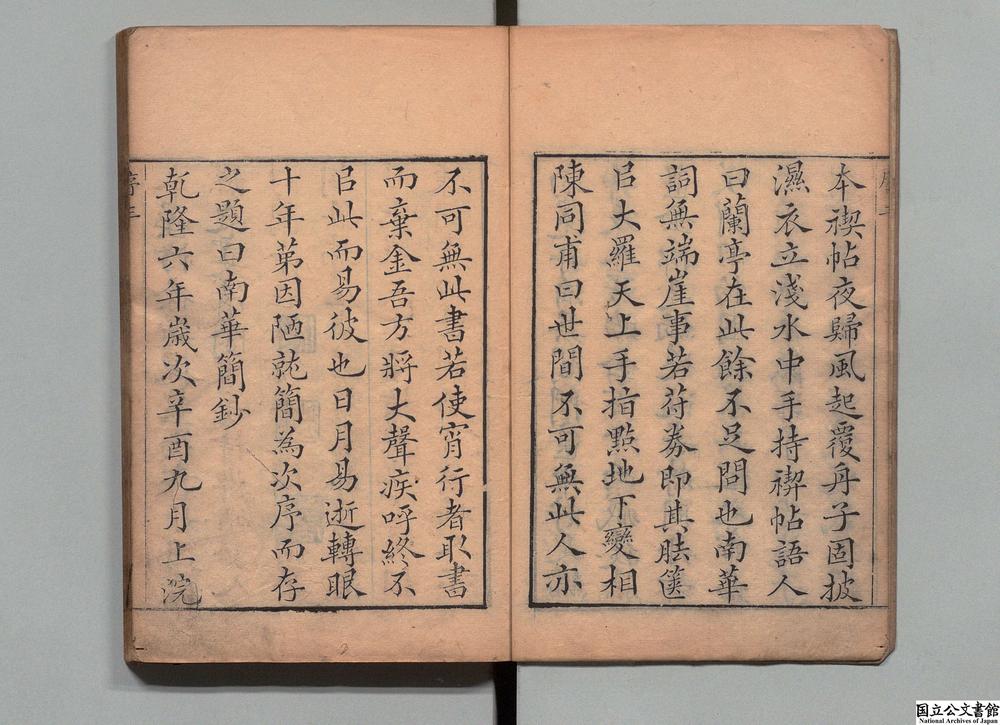 本禊帖夜歸風起覆舟子固披
濕衣立淺水中手持禊帖語人
曰蘭亭在此餘不足問也南華
詞無端崖事若苻券即其胠篋
㠯大羅天上手指點地下變相
陳同甫曰世間不可無此人亦
不可無此書若使宵行者取書
而棄金吾方將大聲疾呼終不
㠯此而易彼也日月易逝轉眼
十年苐因陋就簡為次序而存
之題曰南華簡鈔
乾隆六年歲次辛酉九月上浣
序三
国立公文書館
National Archives of Japan